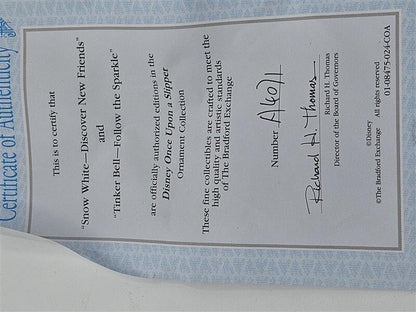 Certificate of Authenticity
This is to certify that
"Snow White—Discover New Friends"
and
"Tinker Bell—Follow the Sparkle"
are officially authorized editions in the
Disney Once Upon a Slipper
Ornament Collection
These fine collectibles are crafted to meet the
high quality and artistic standards
of The Bradford Exchange
Number A4011
Richard H. Thomas
Richard H. Thomas
Director of the Board of Governors
©Disney
©The Bradford Exchange All rights reserved
01-08475-024-COA